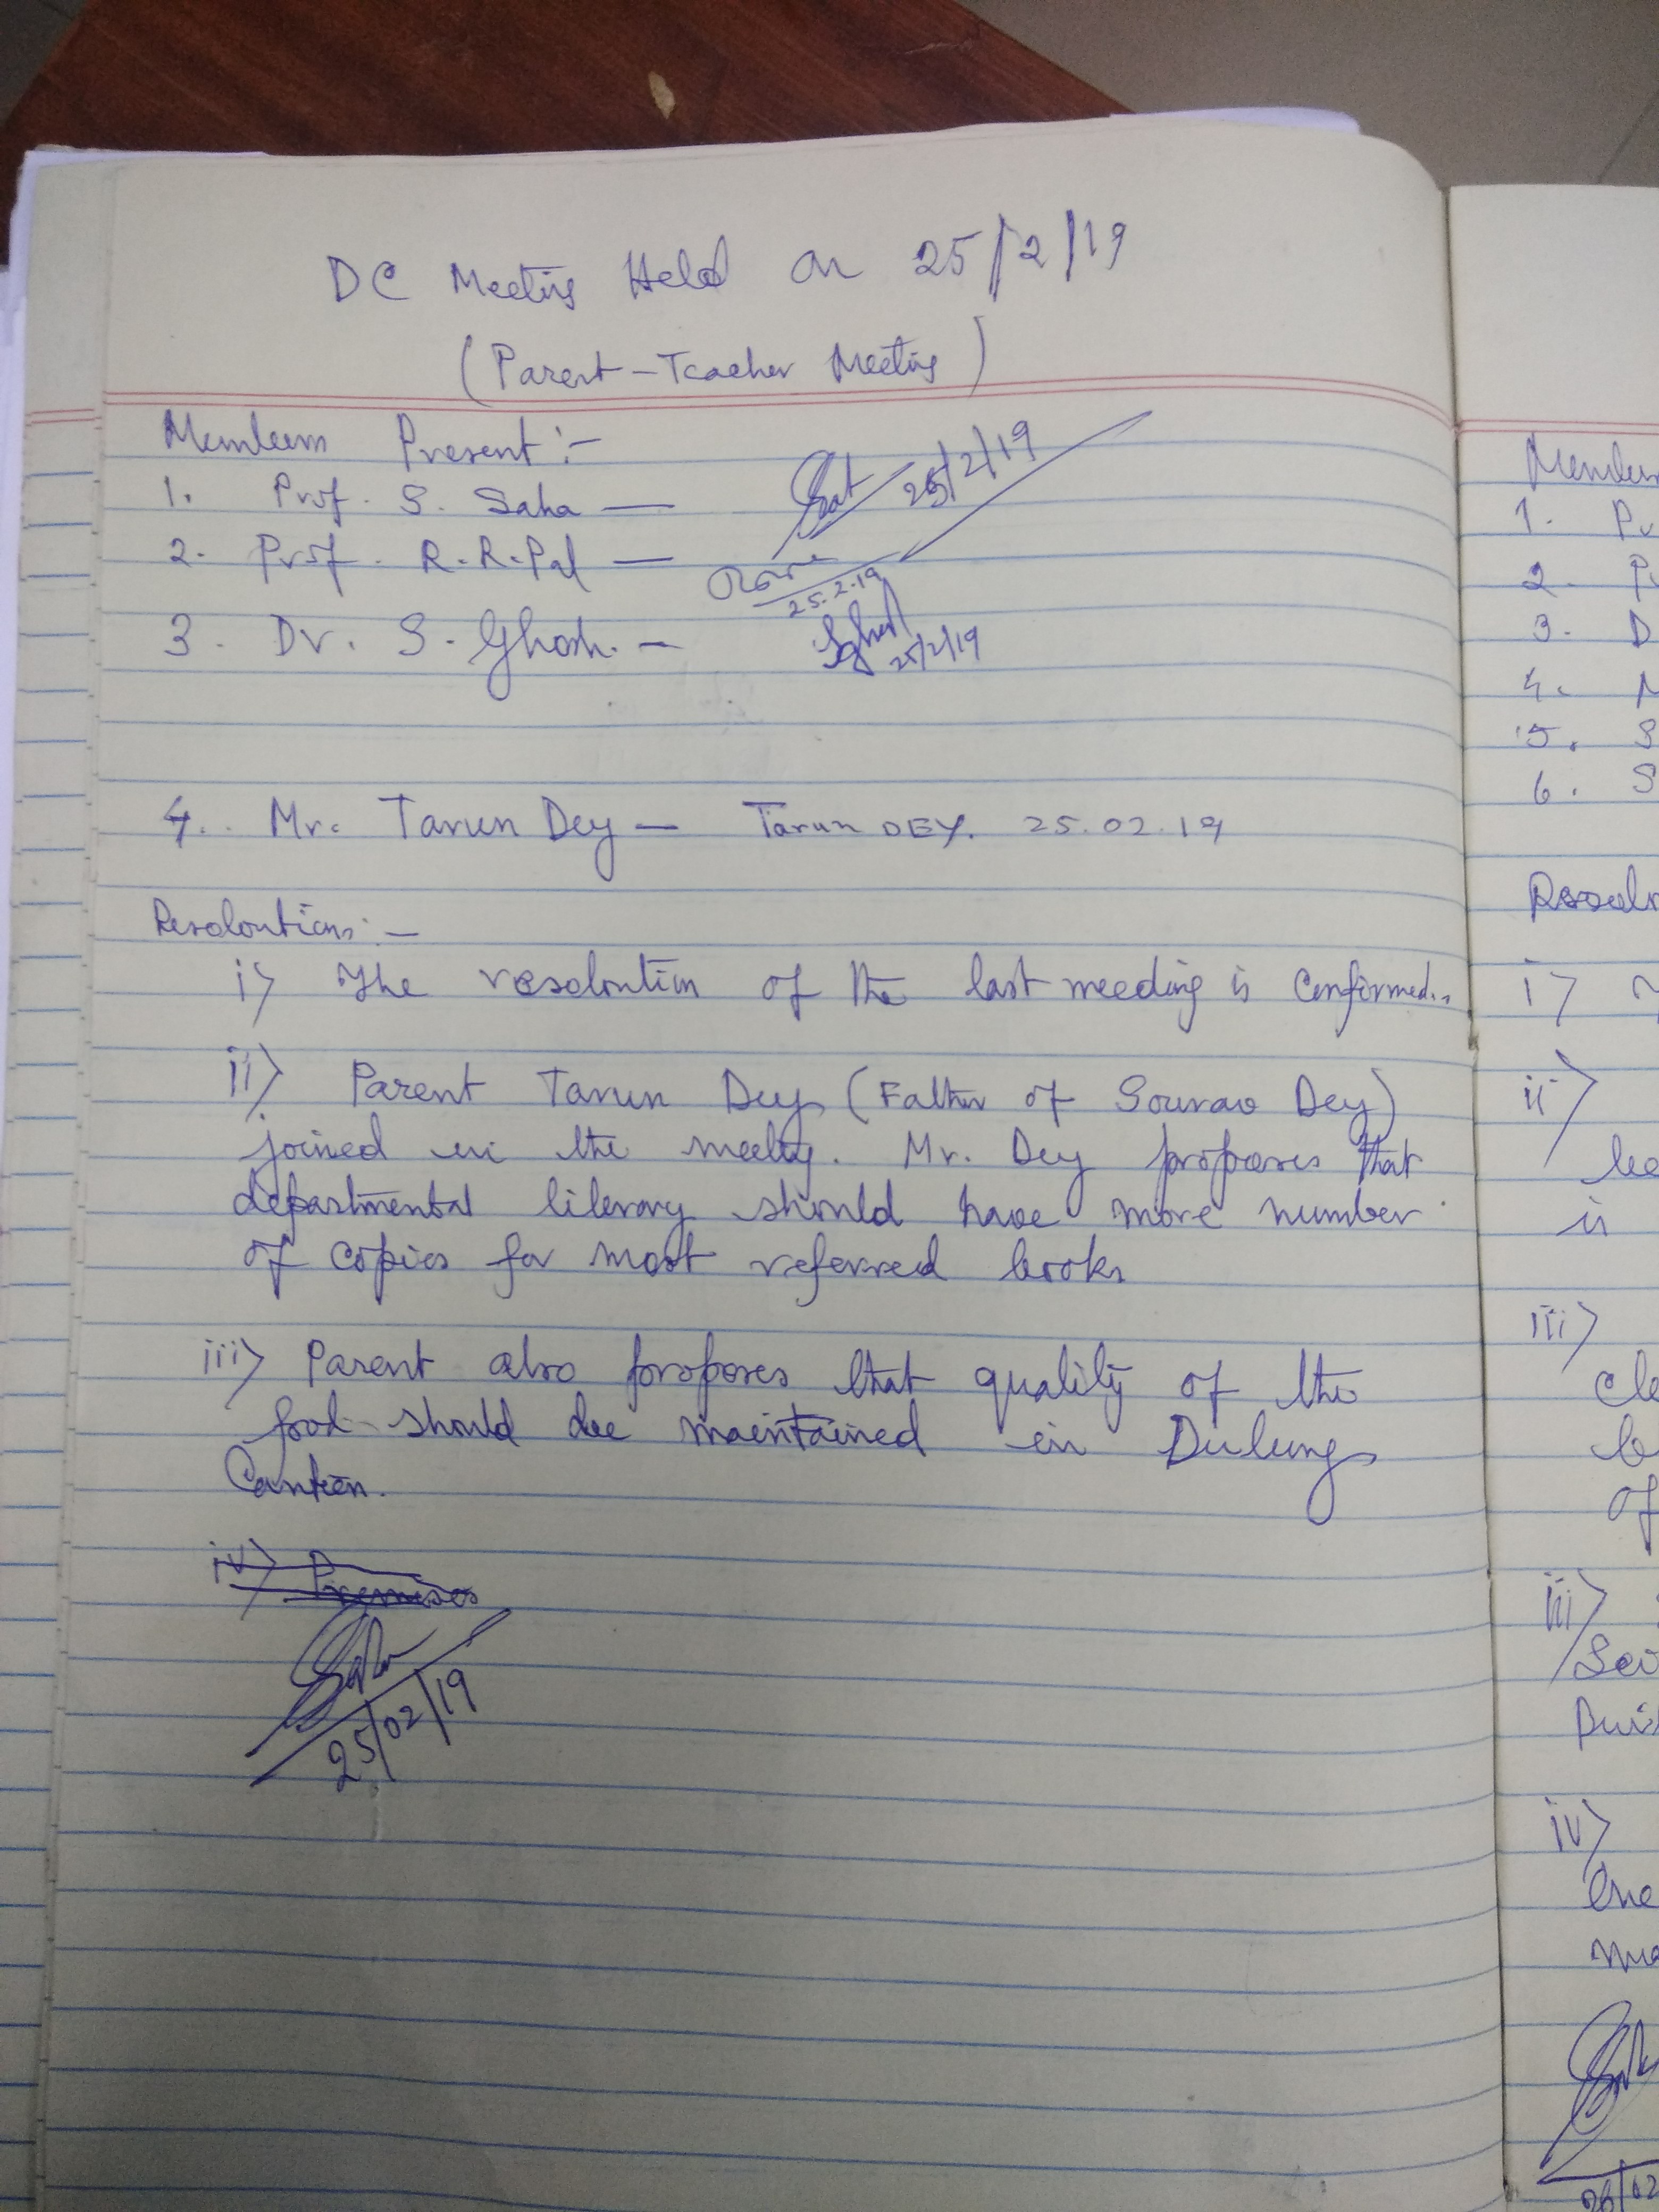 DC Meeting Held on 25/2/19
(Parent-Teacher Meeting)
Members Present :-
1. Prof. S. Saha — 25/2/19
2. Prof. R.R.Pal —
25.2.19
3. Dr. S. Ghosh. — SGhosh
25/2/19
4. Mr. Tarun Dey — Tarun DEY. 25.02.19
Resoloutions :-
i> The resoloution of the last meeding is confirmed.
ii> Parent Tarun Dey (Father of Sourav Dey)
joined in the meeting. Mr. Dey proposes that
departmental library should have more number
of copies for most referred books
iii> Parent also proposes that quality of the
food should be maintained in Dulung
Canteen.
iv> Premises
25/02/19
Member
1. Pr
2. Pr
3. D
4. M
5. S
6. S
i>
ii>
be
is
iii>
cle
b
of
iii>
Sei
iv>
One